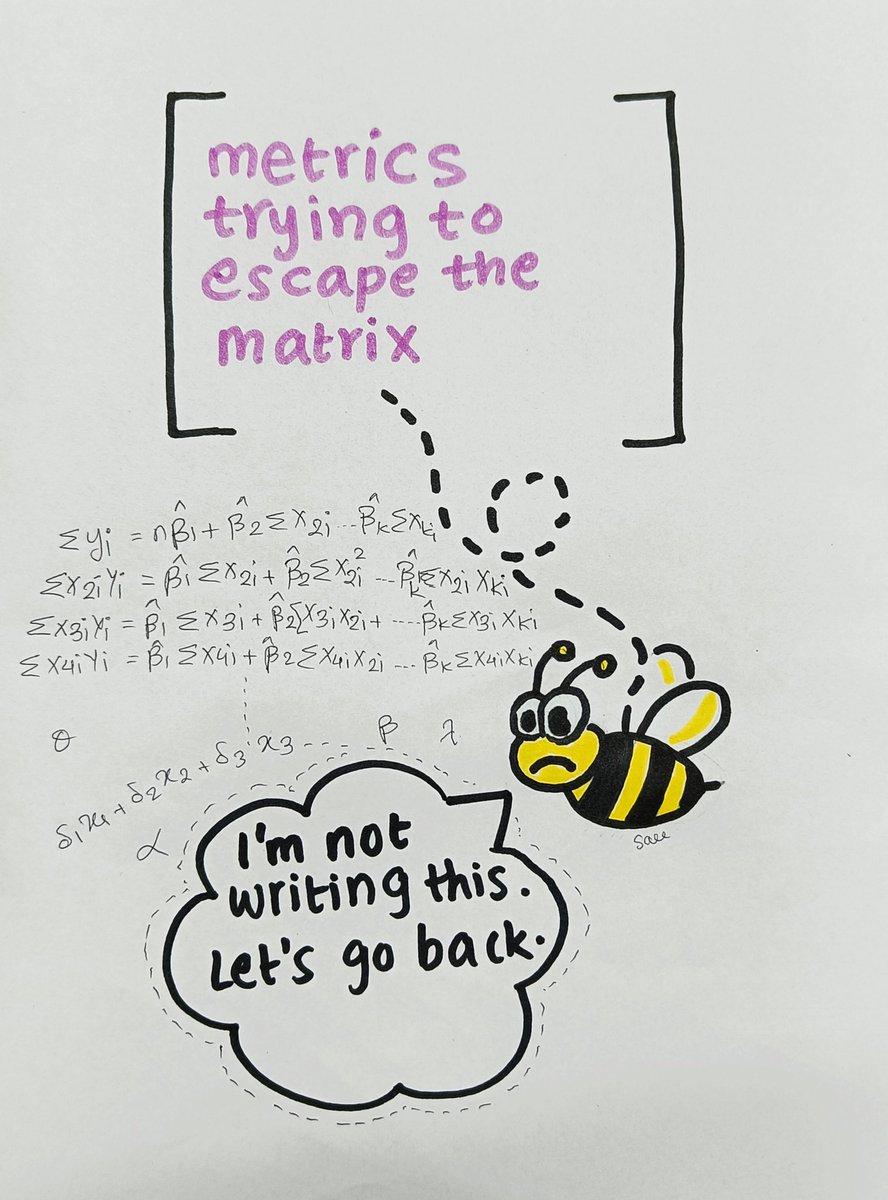 metrics
trying to
escape the
matrix
Σyi = nβ̂1 + β̂2 Σx2i ... β̂kΣxki
Σx2iyi = β̂1 Σx2i + β̂2Σx2i² ... β̂kΣx2i xki
Σx3iyi = β̂1 Σx3i + β̂2Σx3ix2i + .... β̂kΣx3i xki
Σx4iyi = β̂1 Σx4i + β̂2 Σx4ix2i ... β̂kΣx4ixki
θ
β λ
δ1x1 + δ2x2 + δ3x3 ---
α
I'm not
writing this.
Let's go back.